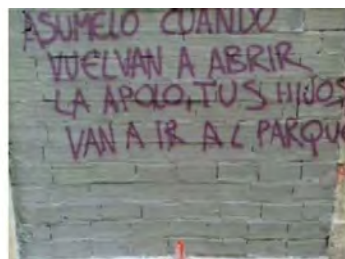 ASUMELO CUANDO
VUELVAN A ABRIR
LA APOLO, TUS HIJOS
VAN A IR AL PARQUE